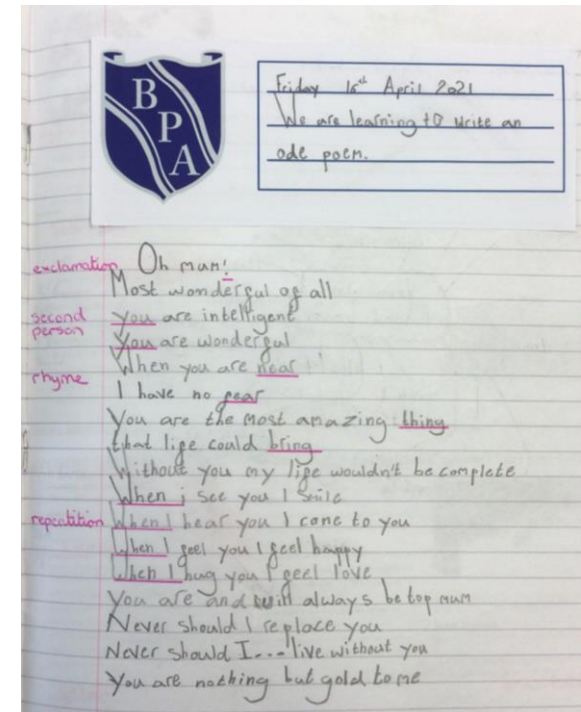 B
P
A
Friday 16th April 2021
We are learning to write an
ode poem.
exclamation Oh mum!
Most wonderful of all
second person you are intelligent
You are wonderful
When you are near
rhyme I have no fear
You are the most amazing thing
that life could bring
Without you my life wouldn't be complete
When i see you I smile
repeatition When I hear you I come to you
When I feel you I feel happy
When I hug you I feel love
You are and will always be top mum
Never should I replace you
Never should I... live without you
You are nothing but gold to me